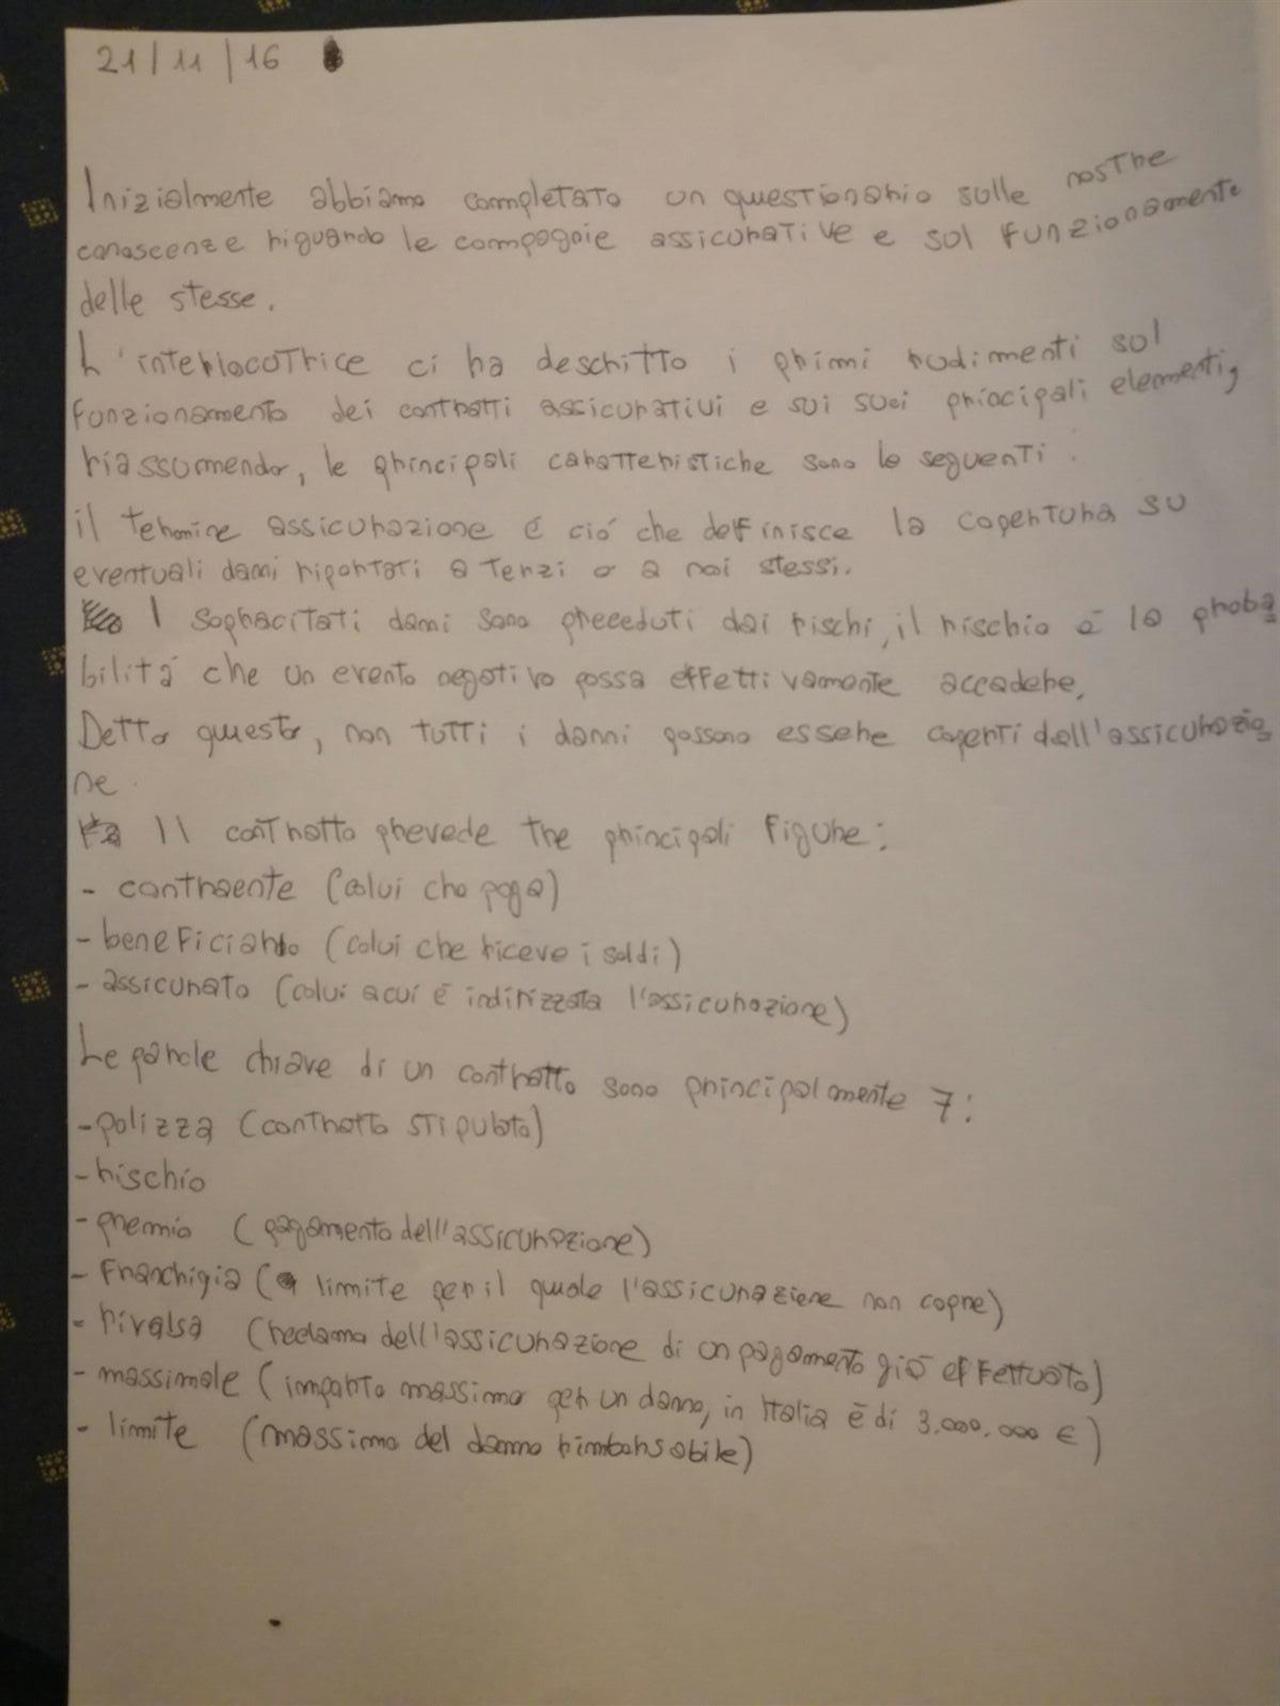 21/11/16
Inizialmente abbiamo completato un questionario sulle nostre
conoscenze riguardo le compagnie assicurative e sul funzionamento
delle stesse.
L'interlocutrice ci ha descritto i primi rudimenti sul
funzionamento dei contratti assicurativi e sui suoi principali elementi,
riassumendo, le principali caratteristiche sono le seguenti:
il termine assicurazione é ció che definisce la copertura su
eventuali danni riportati a terzi o a noi stessi.
I sopracitati danni sono preceduti dai rischi, il rischio è la proba
bilitá che un evento negativo possa effettivamente accadere.
Detto questo, non tutti i danni possono essere coperti dall'assicurazio
ne.
Il contratto prevede tre principali figure:
- contraente (colui che paga)
- beneficiario (colui che riceve i soldi)
- assicurato (colui a cui è indirizzata l'assicurazione)
Le parole chiave di un contratto sono principalmente 7:
- polizza (contratto stipulato)
- rischio
- premio (pagamento dell'assicurazione)
- franchigia (limite per il quale l'assicurazione non copre)
- rivalsa (reclamo dell'assicurazione di un pagamento già effettuato)
- massimale (importo massimo per un danno, in Italia è di 3.000.000 €)
- limite (massimo del danno rimborsabile)